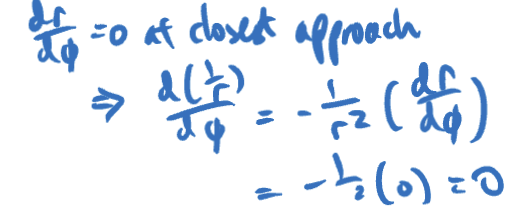 dr/dφ = 0 at closest approach
⇒ d(1/r)/dφ = - 1/r² (dr/dφ)
= - 1/2 (0) = 0